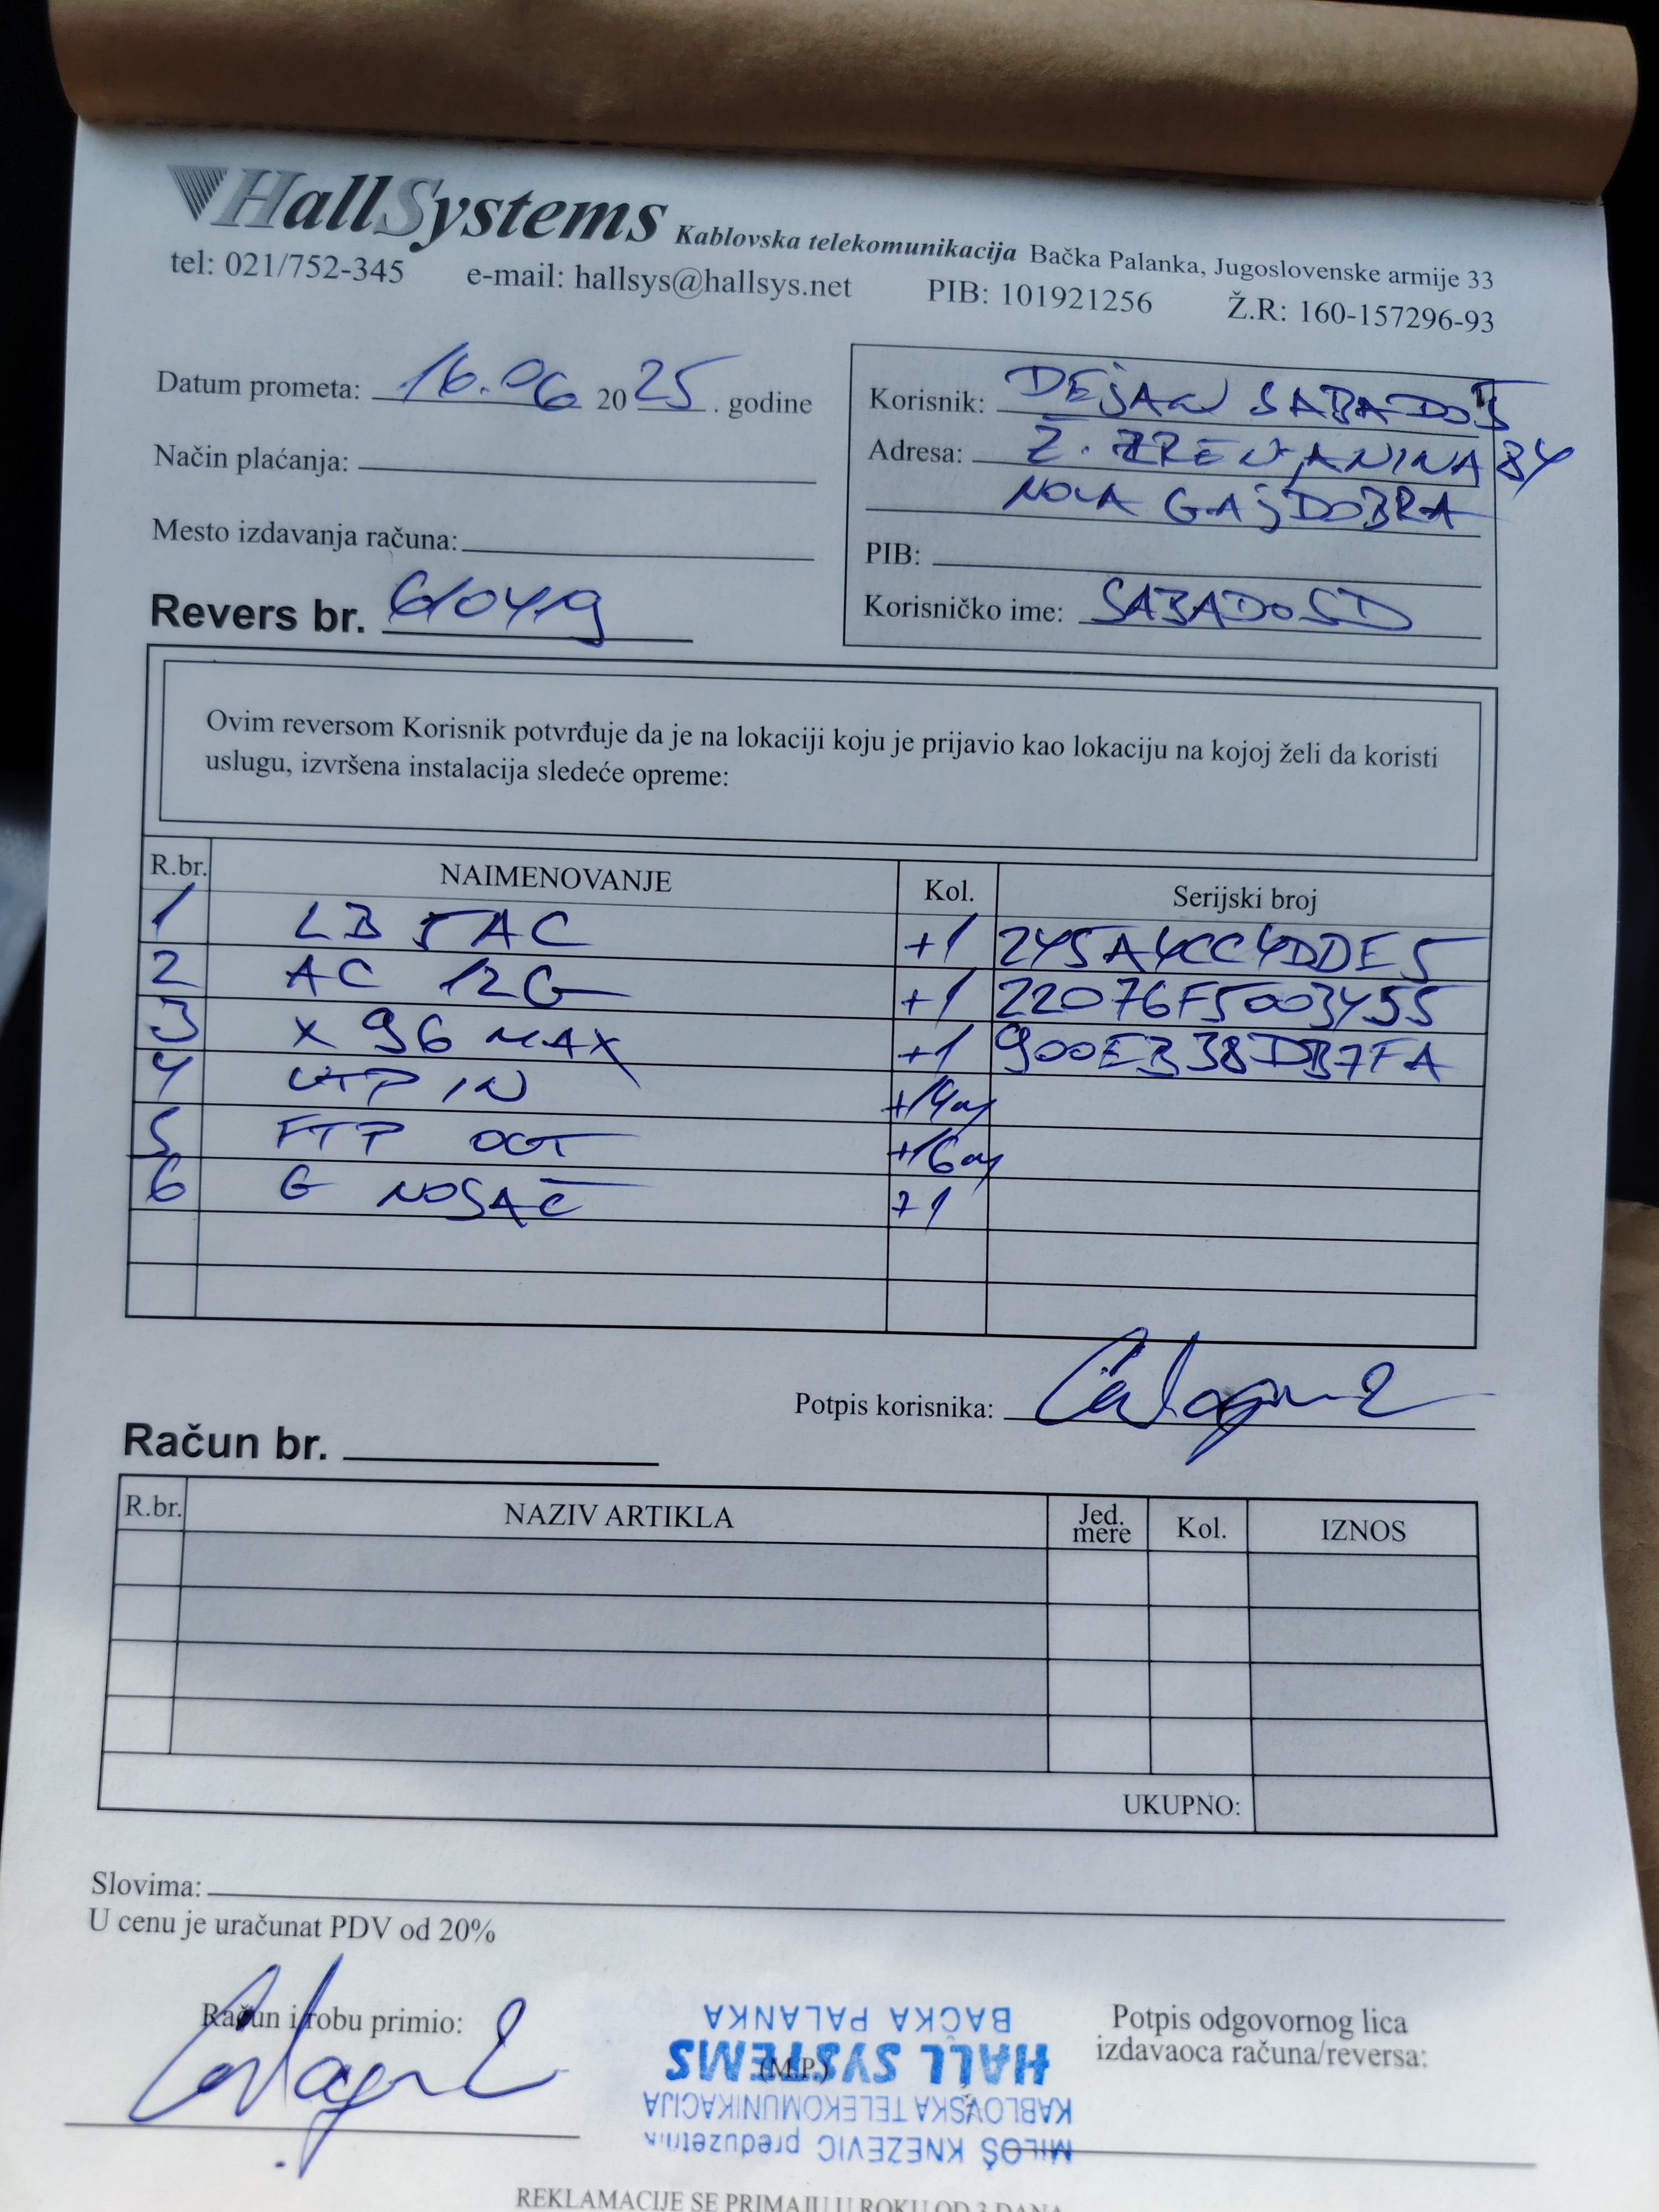 HallSystems Kablovska telekomunikacija Bačka Palanka, Jugoslovenske armije 33
tel: 021/752-345 e-mail: hallsys@hallsys.net PIB: 101921256 Ž.R: 160-157296-93
Datum prometa: 16.06 2025. godine
Način plaćanja:
Mesto izdavanja računa:
Revers br. 6/0419
Korisnik: DEJAN SABADOŠ
Adresa: Ž. ZRENJANINA 84
NOVA GAJDOBRA
PIB:
Korisničko ime: SABADOSD
Ovim reversom Korisnik potvrđuje da je na lokaciji koju je prijavio kao lokaciju na kojoj želi da koristi
uslugu, izvršena instalacija sledeće opreme:
R.br. NAIMENOVANJE Kol. Serijski broj
1 LB 5AC +1 245A4CC4DDE5
2 AC 12G +1 22076F5003455
3 X 96 MAX +1 900EB38DB7FA
4 UTP IN +14m
5 FTP OUT +16m
6 G NOSAČ +1
Potpis korisnika:
Račun br.
R.br. NAZIV ARTIKLA Jed. mere Kol. IZNOS
UKUPNO:
Slovima:
U cenu je uračunat PDV od 20%
Račun i robu primio:
(M.P.)
Potpis odgovornog lica
izdavaoca računa/reversa:
MILOŠ KNEZEVIC preduzetnik
KABLOVSKA TELEKOMUNIKACIJA
HALL SYSTEMS
BAČKA PALANKA
REKLAMACIJE SE PRIMAJU U ROKU OD 3 DANA